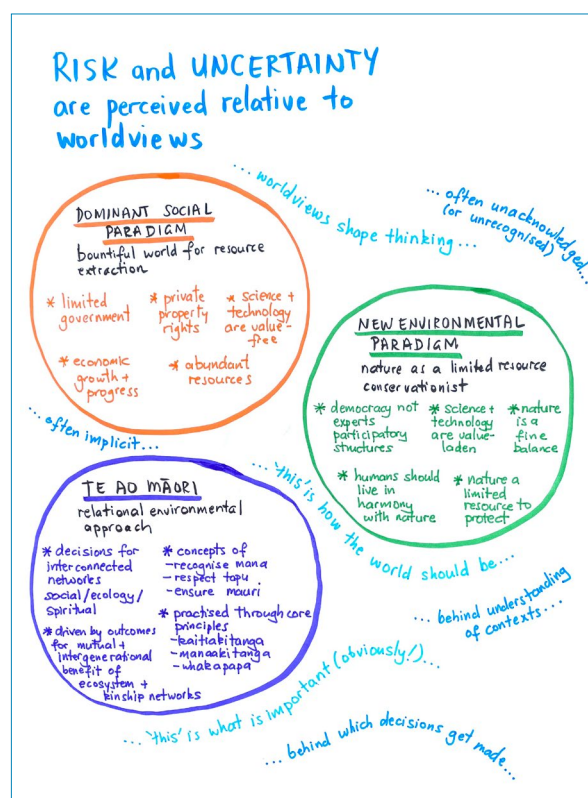 RISK and UNCERTAINTY
are perceived relative to
worldviews
... worldviews shape thinking...
... often unacknowledged...
(or unrecognised)
DOMINANT SOCIAL
PARADIGM
bountiful world for resource
extraction
* limited
government
* private
property
rights
* science +
technology
are value-
free
* economic
growth +
progress
* abundant
resources
NEW ENVIRONMENTAL
PARADIGM
nature as a limited resource
conservationist
* democracy not
experts
participatory
structures
* science +
technology
are value-
laden
* nature
is a
fine
balance
* humans should
live in
harmony
with nature
* nature a
limited
resource to
protect
... often implicit...
... 'this' is how the world should be...
TE AO MĀORI
relational environmental
approach
* decisions for
interconnected
networks
social/ecology/
spiritual
* concepts of
- recognise mana
- respect tapu
- ensure mauri
* driven by outcomes
for mutual +
intergenerational
benefit of
ecosystem +
kinship networks
* practised through core
principles
- kaitiakitanga
- manaakitanga
- whakapapa
... behind understanding
of contexts...
... 'this' is what is important (obviously!)...
... behind which decisions get made...